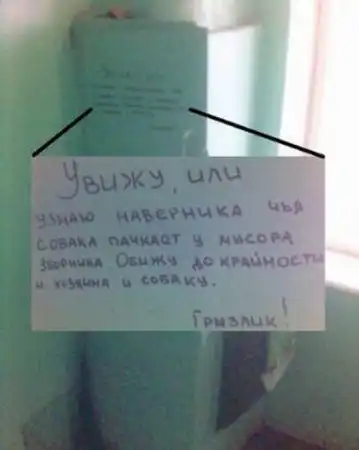 Увижу, или
узнаю наверника чья
собака пачкает у мусора
зборника Обижу до крайности
и хозяина и собаку.
Грызлик!